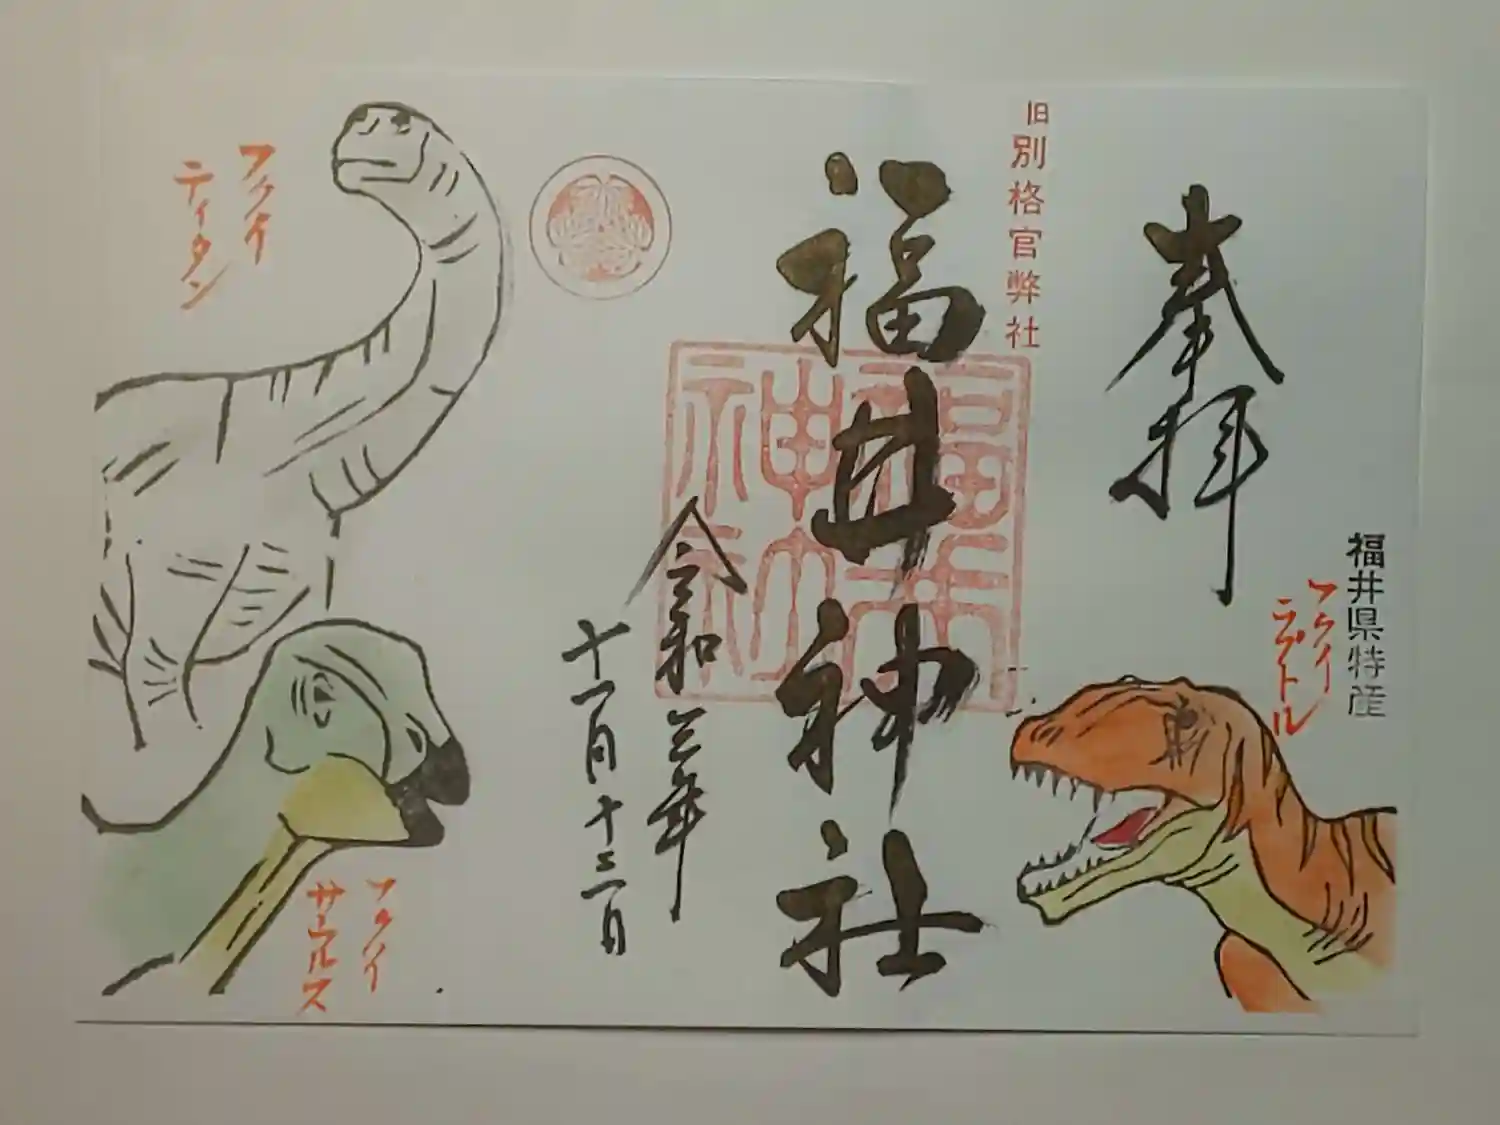 奉拝
福井県特産
フクイ
ラプトル
旧別格官弊社
福井神社
福井
神社
令和三年
十一月十三日
フクイ
ティタン
フクイ
サウルス